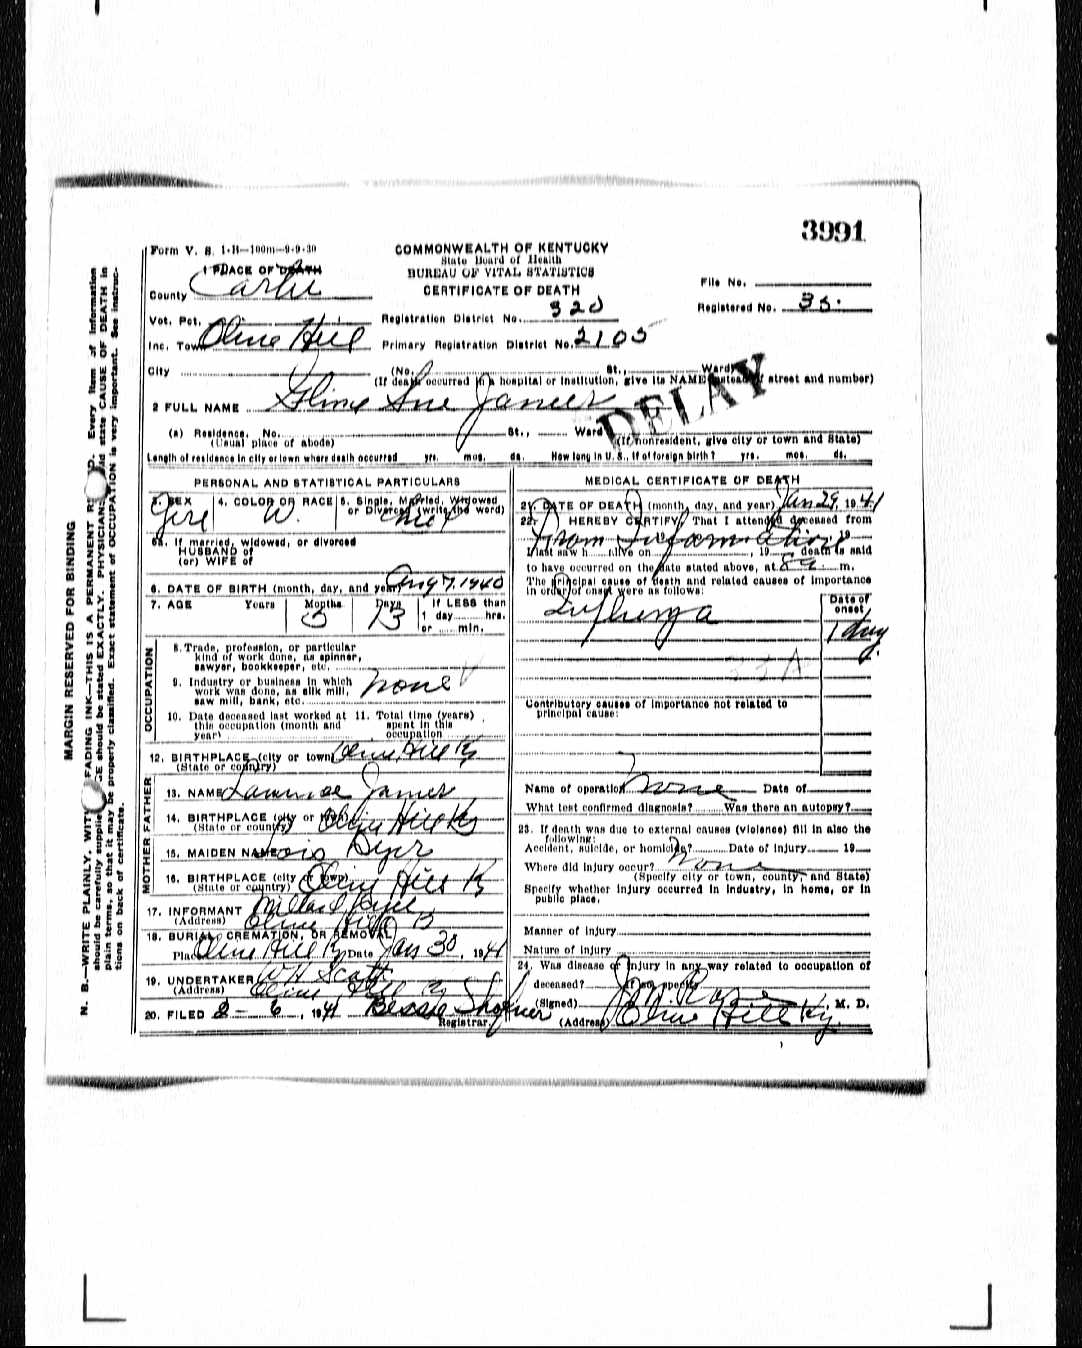 3991
Form V. S. 1-B—100m—9-9-30
COMMONWEALTH OF KENTUCKY
State Board of Health
BUREAU OF VITAL STATISTICS
CERTIFICATE OF DEATH
File No.
Registered No. 35.
1 PLACE OF DEATH
County Carter
Vot. Pct.
Registration District No. 320
Inc. Town Olive Hill
Primary Registration District No. 2105
City (No. St., Ward)
(If death occurred in a hospital or institution, give its NAME instead of street and number)
DELAY
2 FULL NAME Sue
(a) Residence. No. St., Ward
(Usual place of abode) (If nonresident, give city or town and State)
Length of residence in city or town where death occurred yrs. mos. ds. How long in U. S., if of foreign birth? yrs. mos. ds.
PERSONAL AND STATISTICAL PARTICULARS
3. SEX Girl
4. COLOR OR RACE W.
5. Single, Married, Widowed
or Divorced (write the word)
5a. If married, widowed, or divorced
HUSBAND of
(or) WIFE of
6. DATE OF BIRTH (month, day, and year) Aug 7. 1940
7. AGE Years Months Days If LESS than
5 13 1 day hrs.
or min.
OCCUPATION
8. Trade, profession, or particular
kind of work done, as spinner,
sawyer, bookkeeper, etc.
9. Industry or business in which
work was done, as silk mill,
saw mill, bank, etc. none
10. Date deceased last worked at
this occupation (month and
year)
11. Total time (years)
spent in this
occupation
12. BIRTHPLACE (city or town) Olive Hill Ky
(State or country)
FATHER
13. NAME
14. BIRTHPLACE (city or town) Olive Hill Ky
(State or country)
MOTHER
15. MAIDEN NAME Lois Dyer
16. BIRTHPLACE (city or town) Olive Hill K
(State or country)
17. INFORMANT Millard
(Address) Olive Hill
18. BURIAL, CREMATION, OR REMOVAL
Place Olive Hill K Date Jan 30, 1941
19. UNDERTAKER W H Scott
(Address) Olive Hill Ky
20. FILED 2 – 6, 1941 Bessie
Registrar.
MEDICAL CERTIFICATE OF DEATH
21. DATE OF DEATH (month, day, and year) Jan 29, 1941
22. I HEREBY CERTIFY, That I attended deceased from
From Information 19
I last saw h alive on , 19 death is said
to have occurred on the date stated above, at m.
The principal cause of death and related causes of importance
in order of onset were as follows:
Date of
onset
Influenza 1 day
Contributory causes of importance not related to
principal cause:
Name of operation none Date of
What test confirmed diagnosis? Was there an autopsy?
23. If death was due to external causes (violence) fill in also the
following:
Accident, suicide, or homicide? Date of injury 19
Where did injury occur? none
(Specify city or town, county, and State)
Specify whether injury occurred in industry, in home, or in
public place.
Manner of injury
Nature of injury
24. Was disease or injury in any way related to occupation of
deceased? If so, specify
(Signed) , M. D.
(Address) Olive Hill Ky.
MARGIN RESERVED FOR BINDING
N. B.—WRITE PLAINLY, WITH FADING INK—THIS IS A PERMANENT. Every item of information
should be carefully supplied. AGE should be stated EXACTLY. PHYSICIANS should state CAUSE OF DEATH in
plain terms, so that it may be properly classified. Exact statement of OCCUPATION is very important. See instruc-
tions on back of certificate.